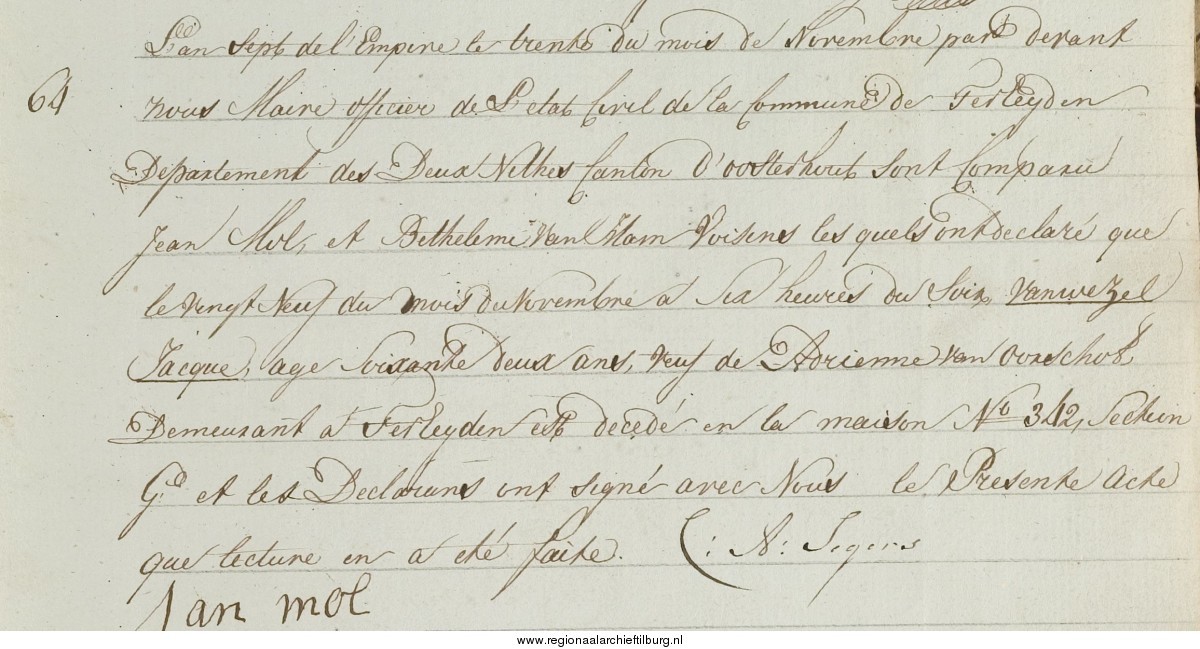 L'an Sept de l'Empire le trente du mois de Novembre part devant
64
nous Maire officier de L'etat Civil de la Commune de Terleyden
Departement des Deux Nethes Canton D'oosterhout sont Comparu
Jean Mol, et Betheleme Van Ham Voisins les quels ont declaré que
le vingt Neuf du mois du Novembre a six heures du Soir, Vanwezel
Jacque, age Soixante deux ans, veuf de Adrienne van Oorschot
Demeurant a Terleyden est decedé en la maison No 342, Section
G. et les Declarans ont signé avec Nous le Presente Acte
que lecture en a été faite. C: A: Segers
Jan mol
www.regionaalarchieftilburg.nl